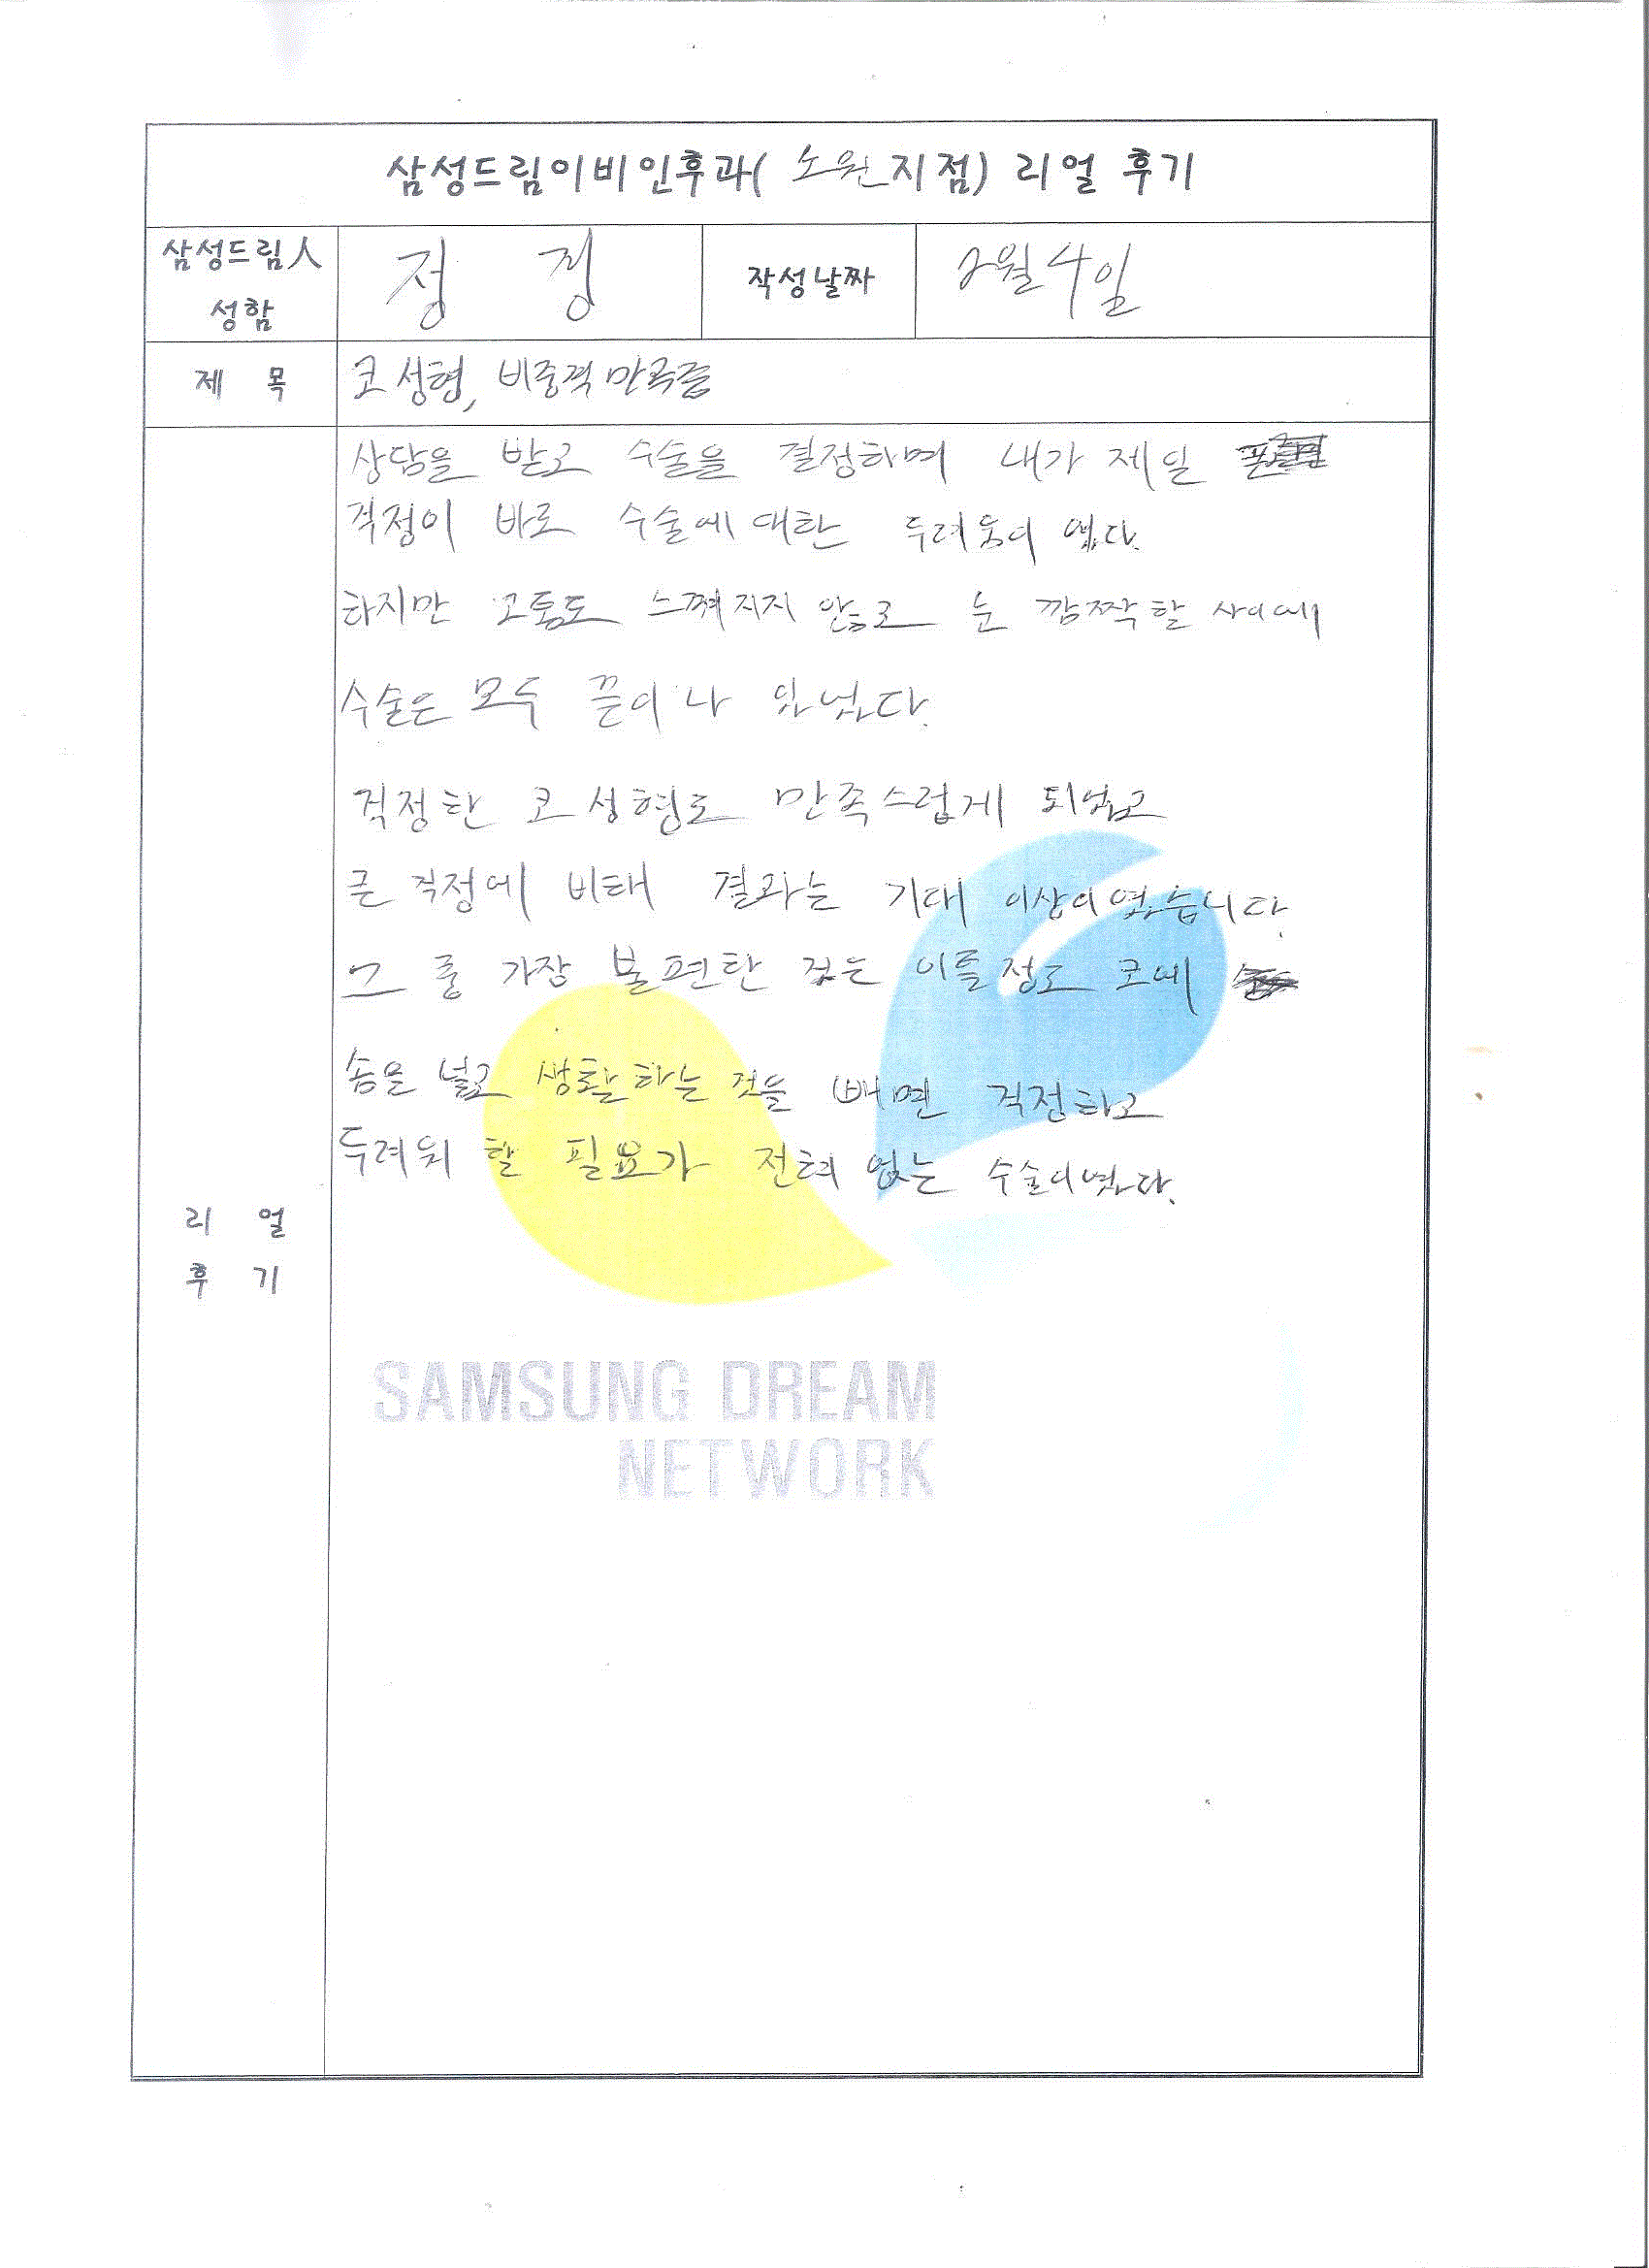 삼성드림이비인후과( 노원지점) 리얼 후기
삼성드림人
성함
정 정
작성날짜
2월 4일
제 목
코 성형, 비중격만곡증
상담을 받고 수술을 결정하며 내가 제일
걱정이 바로 수술에 대한 두려움이 였다.
하지만 고통도 느껴지지 않고 눈 깜짝할 사이에
수술은 모두 끝이 나 있었다.
걱정한 코 성형도 만족스럽게 되었고
큰 걱정에 비해 결과는 기대 이상이였습니다.
그 중 가장 불편한 것은 이틀정도 코에
솜을 넣고 생활하는 것을 빼면 걱정하고
두려워 할 필요가 전혀 없는 수술이였다.
리 얼
후 기
SAMSUNG DREAM
NETWORK